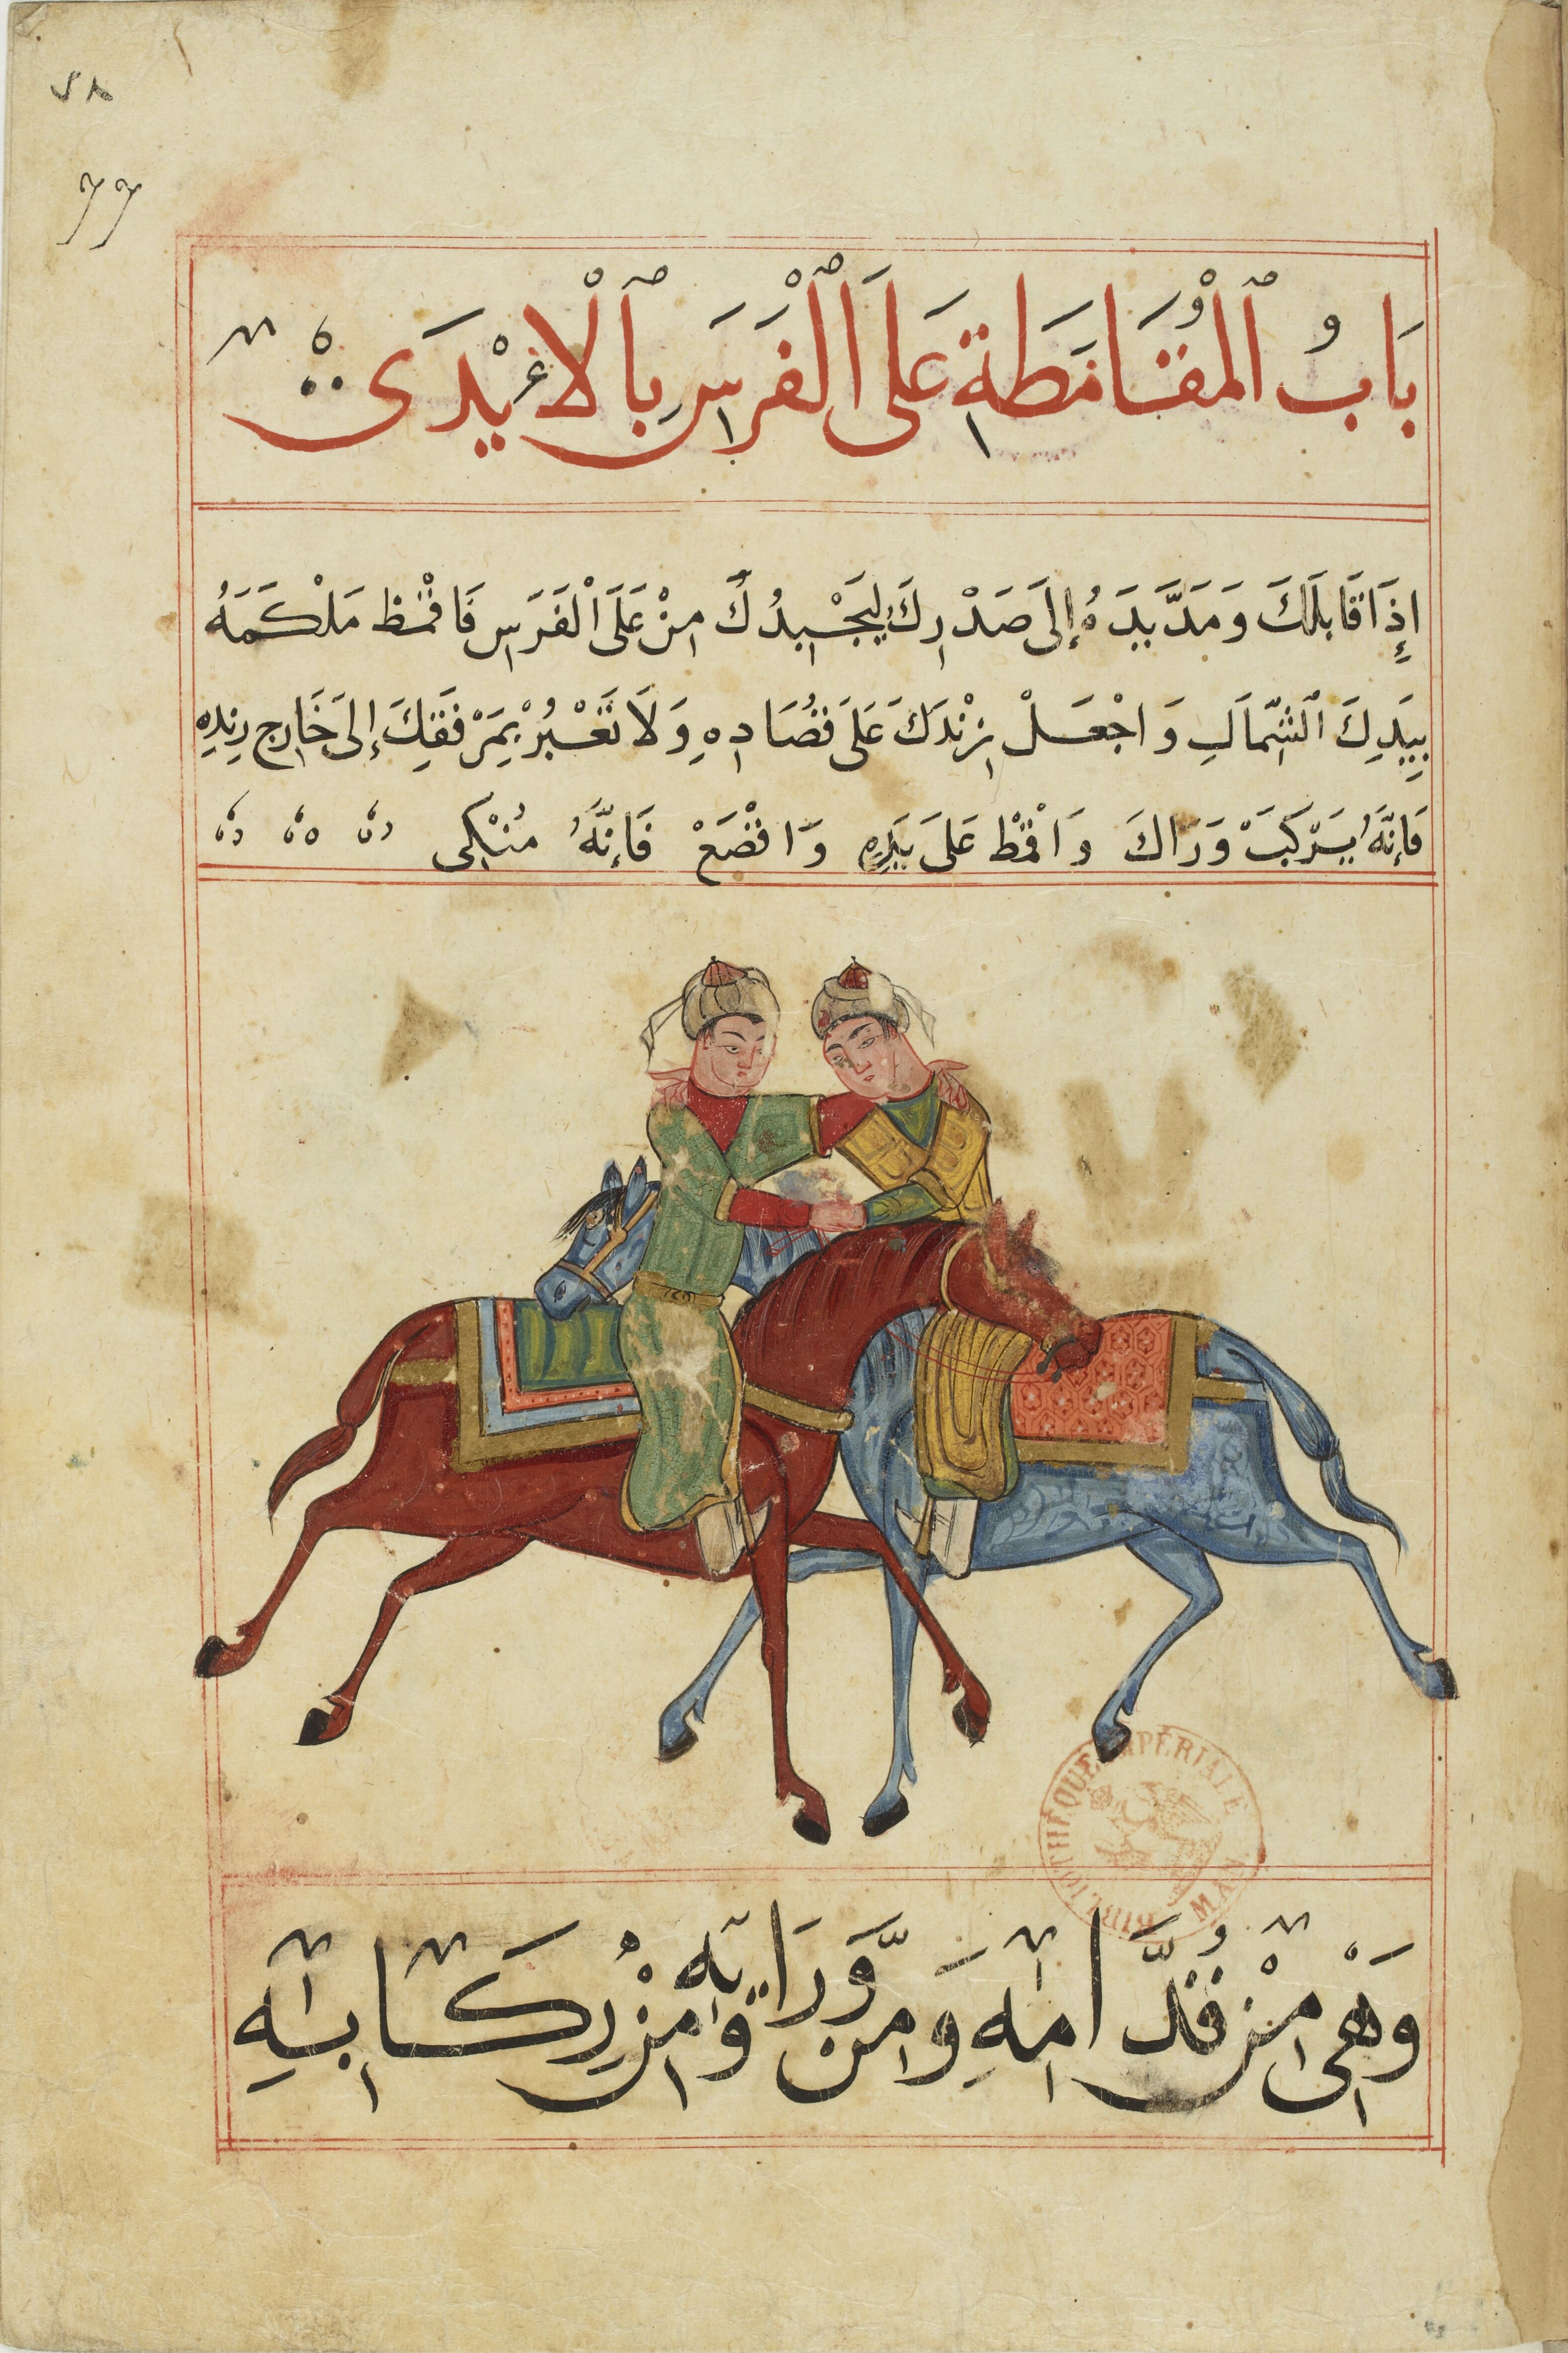 ٧٨
77
بَابُ ٱلْمُقَامَطَةِ عَلَى ٱلْفَرَسِ بِٱلْاَيْدَى
إِذَا قَابَلَكَ وَمَدَّ يَدَهُ إِلَى صَدْرِكَ لِيَجْبِدُكَ مِنْ عَلَى ٱلْفَرَسِ فَاقْمُط مَلْكَمَهُ
بِيَدِكَ ٱلشِّمَالِ وَاجْعَلْ زِنْدَكَ عَلَى فِصَادِهِ وَلَا تَعْبُرْ بِمَرْفَقِكَ إِلَى خَارِج زِندِهِ
فَإِنَّهُ يَرْكَبَ وَرَاكَ وَاقْمُط عَلَى يَدِهِ وَاقْضَعْ فَإِنَّهُ مُنْكِى
وَهِىَ مِنْ قُدَّامِهِ وَمِن وَّرَايِهِ وَمِن رِكَابِهِ
BIBLIOTHÈQUE IMPÉRIALE MAN.